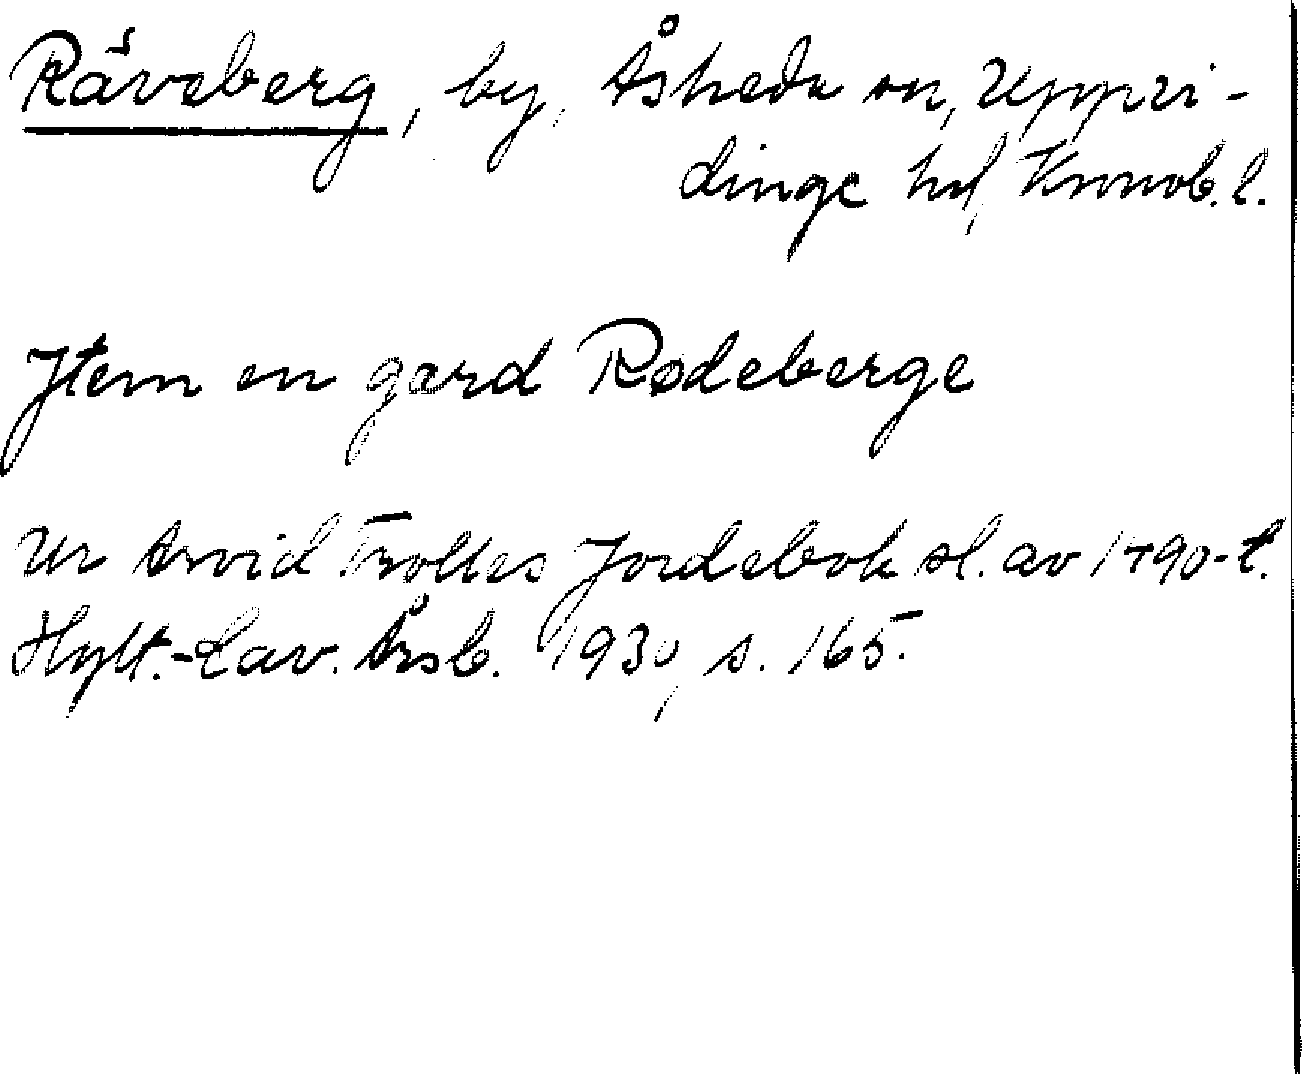 Räveberg, by, Åsheda sn, Uppvi-
dinge hd, Kronob. l.
Item en gard Rødeberge
Ur Arvid Trolles Jordebok sl. av 1490-t.
Hylt.-Cav. Årsb. 1930, s. 165.